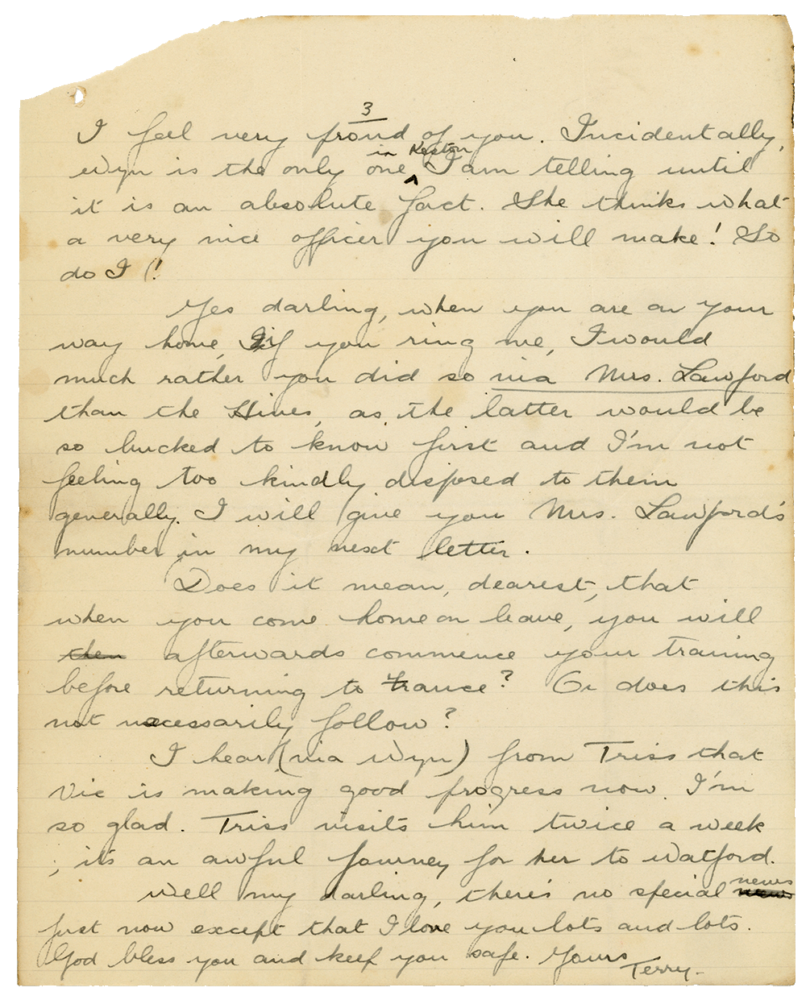 3
I feel very proud of you. Incidentally,
Wyn is the only one in Keston I am telling until
it is an absolute fact. She thinks what
a very nice officer you will make! So
do I!!
Yes darling, when you are on your
way home, if you ring me, I would
much rather you did so via Mrs. Lawford
than the Hines, as the latter would be
so bucked to know first and I'm not
feeling too kindly disposed to them
generally. I will give you Mrs. Lawford's
number in my next letter.
Does it mean, dearest, that
when you come home on leave, you will
then afterwards commence your training
before returning to France? Or does this
not necessarily follow?
I hear (via Wyn) from Triss that
Vic is making good progress now. I'm
so glad. Triss visits him twice a week
; it's an awful journey for her to Watford.
Well my darling, there's no special news
just now except that I love you lots and lots.
God bless you and keep you safe. Yours
Terry.-